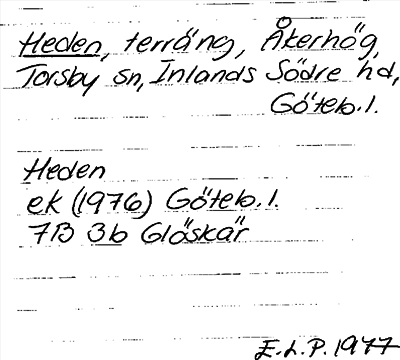 Heden, terräng, Åkerhög,
Torsby sn, Inlands Södre hd,
Göteb. l.
Heden
ek (1976) Göteb. l.
7B 3b Glöskär
E. L. P. 1977